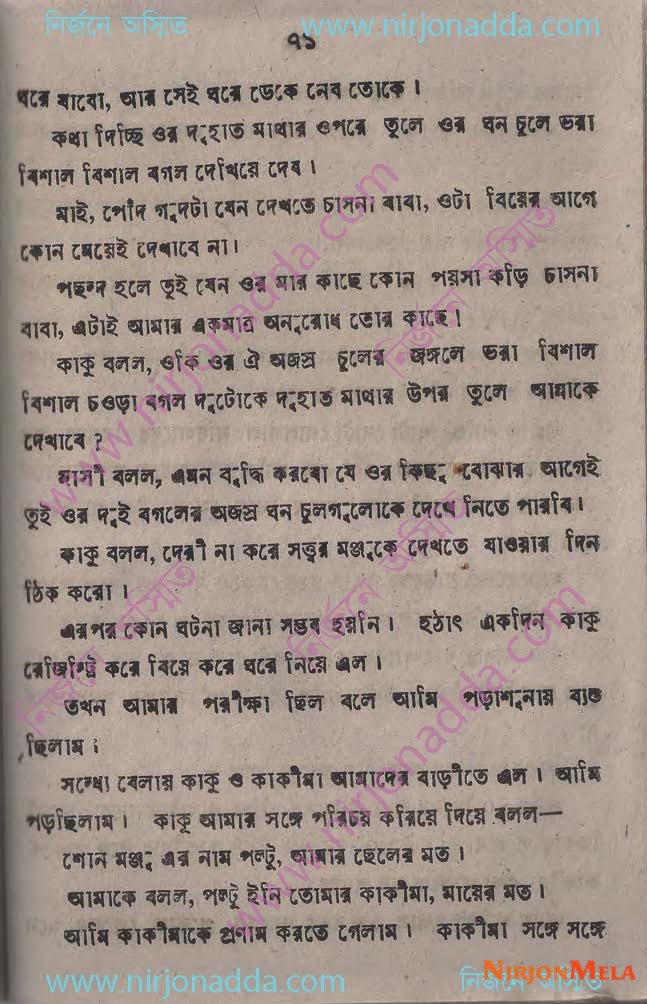 নির্জনে অস্মিতা www.nirjonadda.com
৭১
ঘরে যাবো, আর সেই ঘরে ডেকে নেব তোকে।
কথা দিচ্ছি ওর দুহাত মাথার ওপরে তুলে ওর ঘন চুলে ভরা
বিশাল বিশাল বগল দেখিয়ে দেব।
মাই, পোঁদ গুদটা যেন দেখতে চাসনা বাবা, ওটা বিয়ের আগে
কোন মেয়েই দেখাবে না।
পছন্দ হলে তুই যেন ওর মার কাছে কোন পয়সা কড়ি চাসনা
বাবা, এটাই আমার একমাত্র অনুরোধ তোর কাছে।
কাকু বলল, ওকি ওর ঐ অজস্র চুলের জঙ্গলে ভরা বিশাল
বিশাল চওড়া বগল দুটোকে দুহাত মাথার উপর তুলে আমাকে
দেখাবে?
মাসী বলল, এমন বুদ্ধি করবো যে ওর কিছু বোঝার আগেই
তুই ওর দুই বগলের অজস্র ঘন চুলগুলোকে দেখে নিতে পারবি।
কাকু বলল, দেরী না করে সত্বর মঞ্জুকে দেখতে যাওয়ার দিন
ঠিক করো।
এরপর কোন ঘটনা জানা সম্ভব হয়নি। হঠাৎ একদিন কাকু
রেজিস্ট্রি করে বিয়ে করে ঘরে নিয়ে এল।
তখন আমার পরীক্ষা ছিল বলে আমি পড়াশুনায় ব্যস্ত
ছিলাম।
সন্ধ্যে বেলায় কাকু ও কাকীমা আমাদের বাড়ীতে এল। আমি
পড়ছিলাম। কাকু আমার সঙ্গে পরিচয় করিয়ে দিয়ে বলল—
শোন মঞ্জু এর নাম পল্টু, আমার ছেলের মত।
আমাকে বলল, পল্টু ইনি তোমার কাকীমা, মায়ের মত।
আমি কাকীমাকে প্রণাম করতে গেলাম। কাকীমা সঙ্গে সঙ্গে
www.nirjonadda.com নির্জনে অস্মিতা
NIRJONMELA